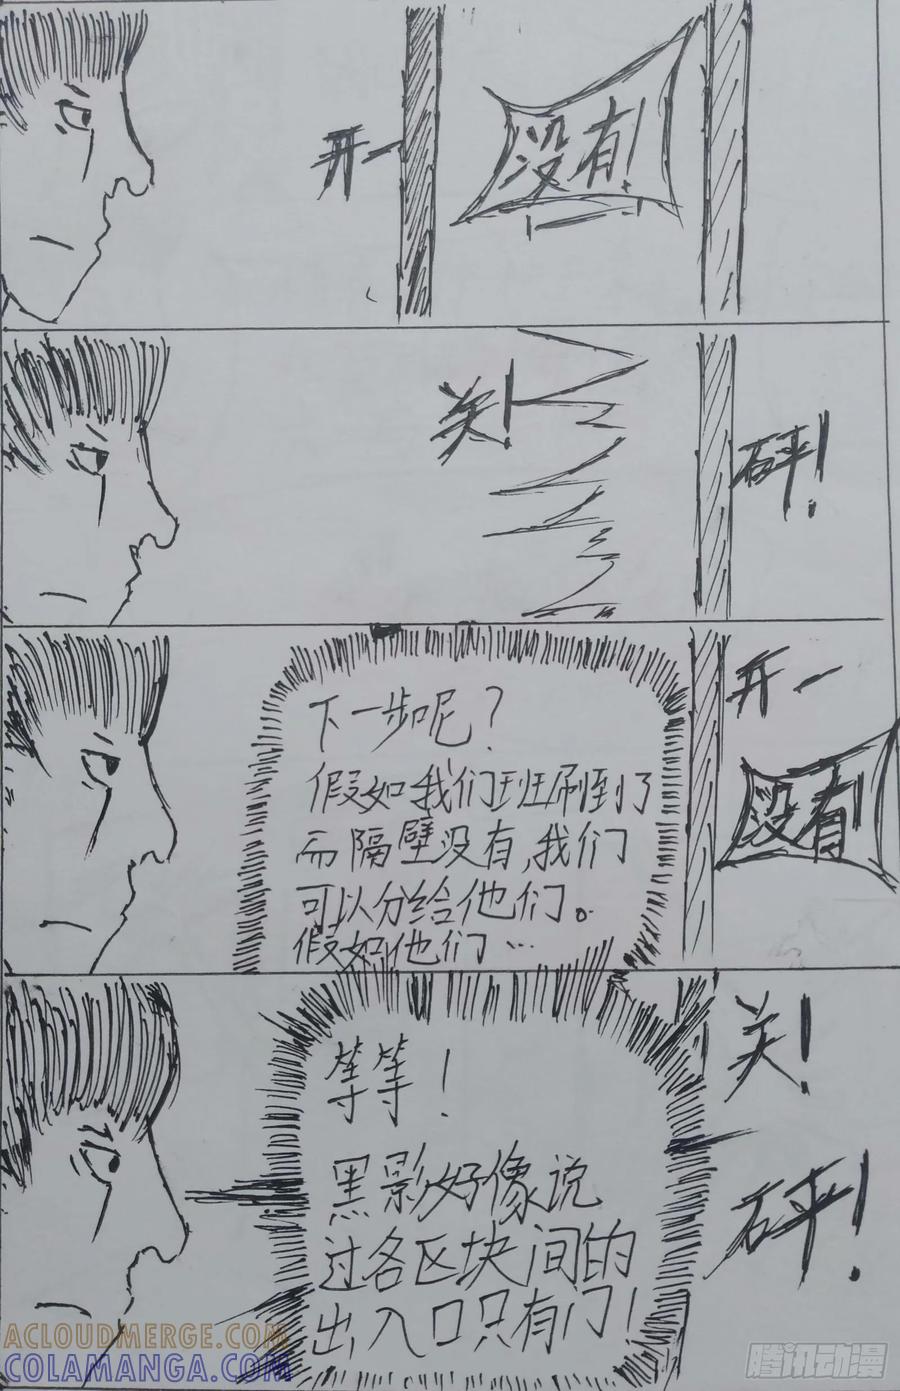 开一
没有！
关！
砰！
下一步呢？
假如我们班刷到了
而隔壁没有，我们
可以分给他们。
假如他们…
开一
没有！
关！
砰！
等等！
黑影好像说
过各区块间的
出入口只有门！
ACLOUDMERGE.COM
COLAMANGA.COM
腾讯动漫